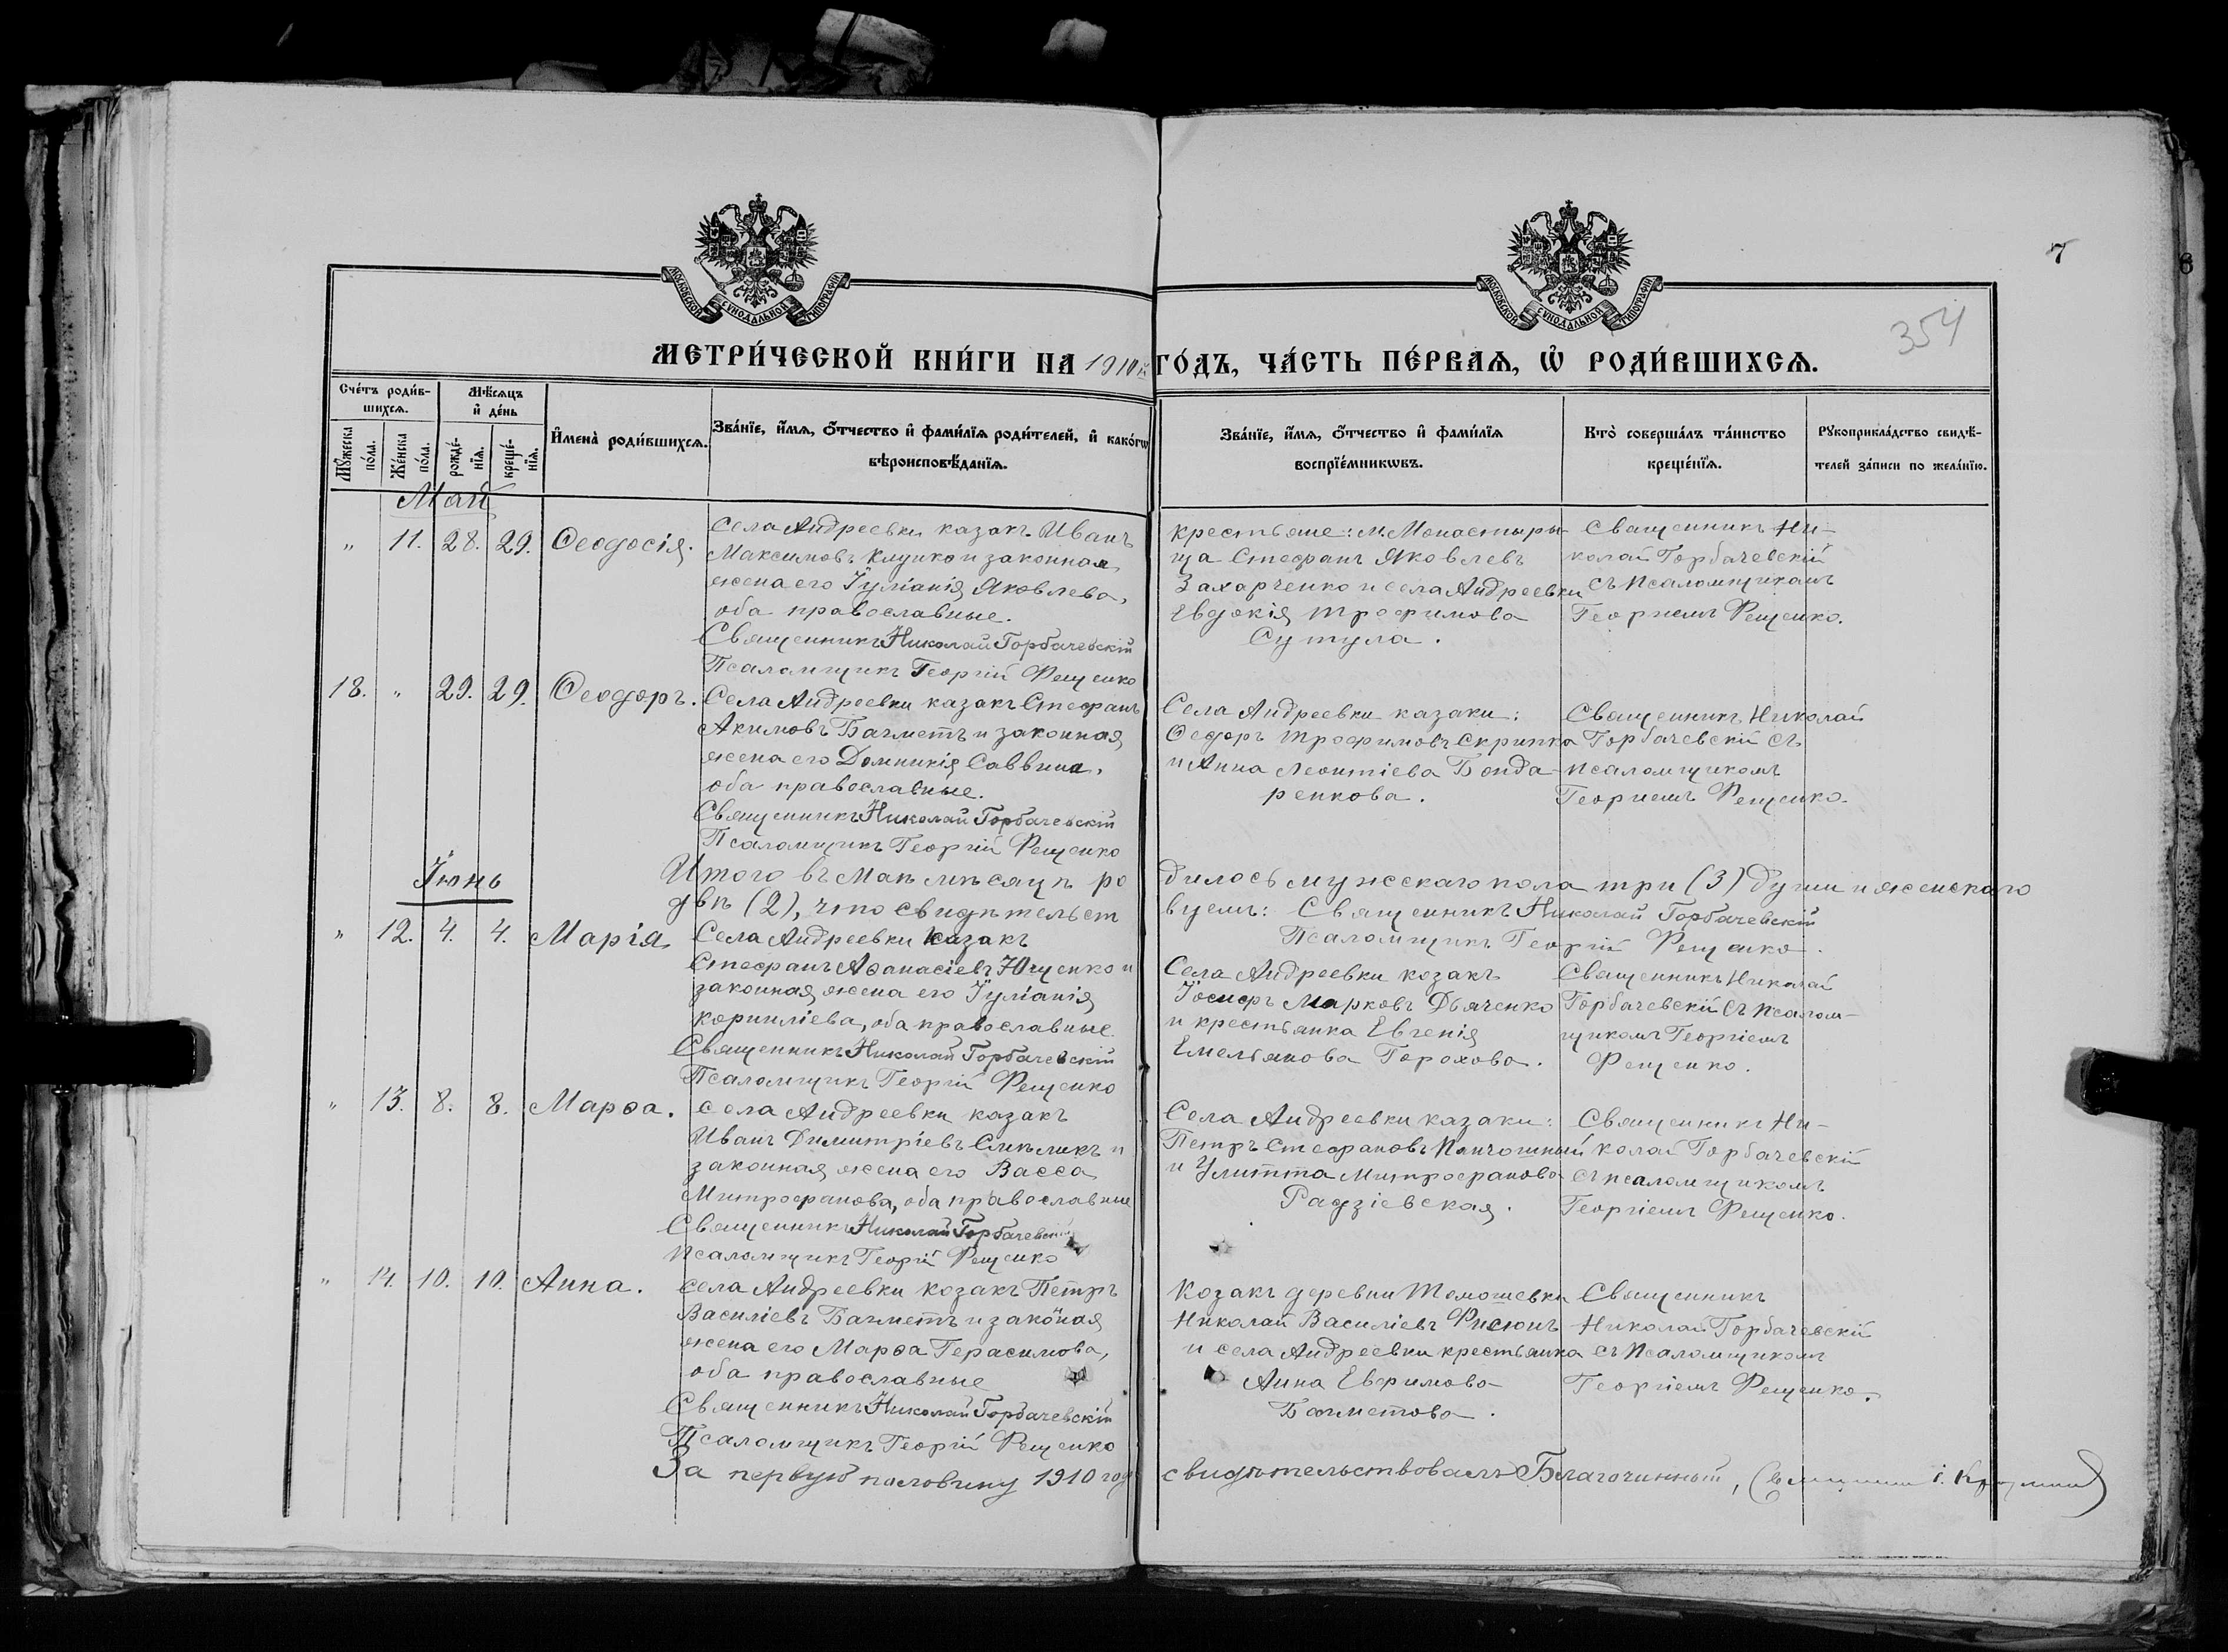 7
354
МОСКОВСКОЙ СУНОДАЛЬНОЙ ТИПОГРАФІИ
МОСКОВСКОЙ СУНОДАЛЬНОЙ ТИПОГРАФІИ
МЕТРИ́ЧЕСКОЙ КНИ́ГИ НА 1910й ГО́ДЪ, ЧА́СТЬ ПЕ́РВАѦ, Ѿ РОДИ́ВШИХСѦ.
Сче́тъ роди́в-
шихсѧ.
Мѣ́сѧцъ
и҆ де́нь
Мꙋ́жеска
по́ла.
Же́нска
по́ла.
рожде́-
нїѧ.
креще́-
нїѧ.
И҆мена̀ роди́вшихсѧ.
Зва́нїе, и҆́мѧ, ѻ҆́тчество и҆ фами́лїѧ роди́телей, и҆ како́гѡ
вѣроисповѣ́данїѧ.
Зва́нїе, и҆́мѧ, ѻ҆́тчество и҆ фами́лїѧ
воспрїе́мникѡвъ.
Кто̀ соверша́лъ та́инство
креще́нїѧ.
Рꙋкоприкла́дство свидѣ́-
телей за́писи по жела́нїю.
Май
" 11. 28. 29. Ѳеодосія.
Села Андреевки казакъ Иванъ
Максимовъ Клцико и законная
жена его Іуліанія Яковлева,
оба православные.
Священникъ Николай Горбачевскій
Псаломщикъ Георгій Рещенко
крестьяне: м. Монастыри-
ща Стефанъ Яковлевъ
Захарченко и села Андреевки
Евдокія Трофимова
Сутула.
Священникъ Ни-
колай Горбачевскій
съ псаломщикомъ
Георгиемъ Рещенко.
18. " 29. 29. Ѳеодоръ.
Села Андреевки казакъ Стефанъ
Акимовъ Бачметъ и законная
жена его Домникія Саввина,
оба православные.
Священникъ Николай Горбачевскій
Псаломщикъ Георгій Рещенко
Села Андреевки казаки:
Ѳедоръ Трофимовъ Скрипка
и Анна Леонтіева Бонда-
ренкова.
Священникъ Николай
Горбачевскій съ
псаломщикомъ
Георгиемъ Рещенко.
Итого въ Маѣ мѣсяцѣ родилось мужескаго пола три (3) души и женскаго
двѣ (2), что свидѣтельствуемъ: Священникъ Николай Горбачевскій
Псаломщикъ Георгій Рещенко.
Іюнь
" 12. 4. 4. Марія
Села Андреевки казакъ
Стефанъ Аѳанасіевъ Ющенко и
законная жена его Іуліанія
Корниліева, оба православные
Священникъ Николай Горбачевскій
Псаломщикъ Георгій Рещенко
Села Андреевки козакъ
Іосифъ Марковъ Дьяченко
и крестьянка Евгенія
Емельянова Горохова.
Священникъ Николай
Горбачевскій съ псалом-
щикомъ Георгіемъ
Рещенко.
" 13. 8. 8. Марѳа.
села Андреевки казакъ
Иванъ Димитріевъ Смѣликъ и
законная жена его Васса
Митрофанова, оба православные
Священникъ Николай Горбачевскій
Псаломщикъ Георгій Рещенко
Села Андреевки казаки:
Петръ Стефановъ
и Улитта Митрофанова
Радзіевская.
Священникъ Ни-
колай Горбачевскій
съ псаломщикомъ
Георгіемъ Рещенко.
" 14. 10. 10. Анна.
села Андреевки козакъ Петръ
Василіевъ Бачметъ и законая
жена его Марѳа Герасимова,
оба православные
Священникъ Николай Горбачевскій
Псаломщикъ Георгій Рещенко
Козакъ деревни Томашевки
Николай Василіевъ Фисюнъ
и села Андреевки крестьянка
Анна Евфимова
Бачметова.
Священникъ
Николай Горбачевскій
съ Псаломщикомъ
Георгіемъ Рещенко.
За первую половину 1910 года свидѣтельствовалъ Благочинный,